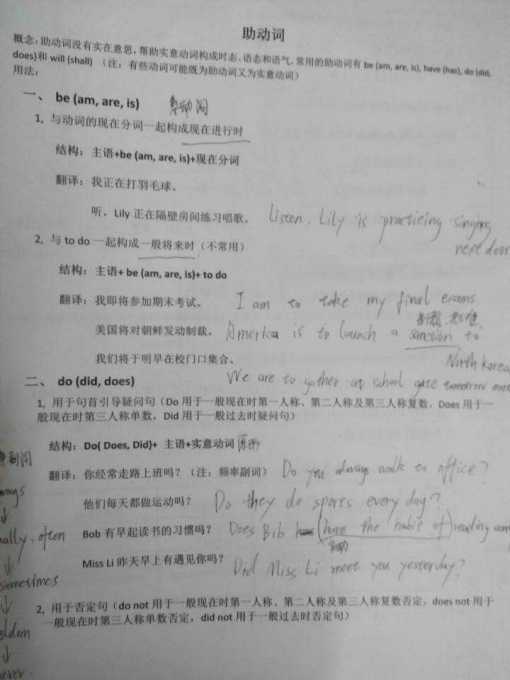 助动词
概念：助动词没有实在意思，帮助实意动词构成时态、语态和语气。常用的助动词有 be (am, are, is), have (has), do (did,
does)和 will (shall) （注：有些动词可能既为助动词又为实意动词）
用法：
一、 be (am, are, is)
1, 与动词的现在分词一起构成现在进行时
结构：主语+be (am, are, is)+现在分词
翻译：我正在打羽毛球。
听，Lily 正在隔壁房间练习唱歌。 Listen, Lily is practicing singing
next door
2, 与 to do 一起构成一般将来时（不常用）
结构：主语+ be (am, are, is)+ to do
翻译：我即将参加期末考试。 I am to take my final exams
美国将对朝鲜发动制裁。 America is to launch a sanction to
North Korea
我们将于明早在校门口集合。 We are to gather at school gate tomorrow
二、 do (did, does)
1, 用于句首引导疑问句（Do 用于一般现在时第一人称、第二人称及第三人称复数，Does 用于一
般现在时第三人称单数，Did 用于一般过去时疑问句）
结构：Do( Does, Did)+ 主语+实意动词
翻译：你经常走路上班吗？（注：频率副词） Do you always walk to office?
他们每天都做运动吗？ Do they do sports every day?
Bob 有早起读书的习惯吗？ Does Bib (have the habit of) reading
Miss Li 昨天早上有遇见你吗？ Did Miss Li meet you yesterday?
2, 用于否定句（do not 用于一般现在时第一人称、第二人称及第三人称复数否定，does not 用于
一般现在时第三人称单数否定，did not 用于一般过去时否定句）
often
sometimes